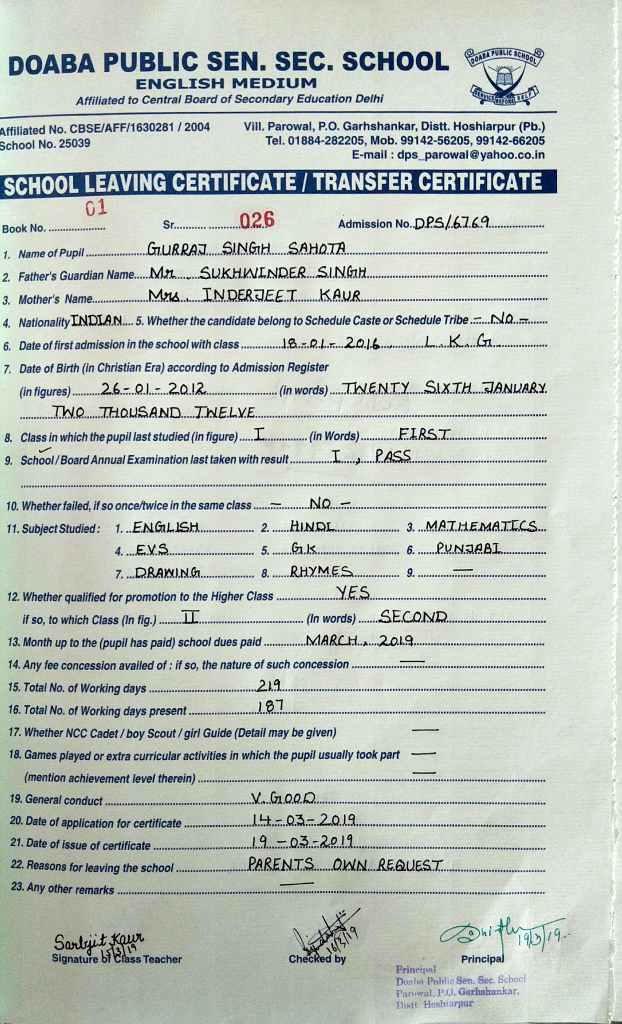 DOABA PUBLIC SEN. SEC. SCHOOL
ENGLISH MEDIUM
Affiliated to Central Board of Secondary Education Delhi
DOABA PUBLIC SCHOOL
SERVICE BEFORE SELF
Affiliated No. CBSE/AFF/1630281 / 2004
School No. 25039
Vill. Parowal, P.O. Garhshankar, Distt. Hoshiarpur (Pb.)
Tel. 01884-282205, Mob. 99142-56205, 99142-66205
E-mail : dps_parowal@yahoo.co.in
SCHOOL LEAVING CERTIFICATE / TRANSFER CERTIFICATE
Book No. 01 Sr. 026 Admission No. DPS/6769
1. Name of Pupil GURRAJ SINGH SAHOTA
2. Father's Guardian Name Mr. SUKHWINDER SINGH
3. Mother's Name Mrs. INDERJEET KAUR
4. Nationality INDIAN 5. Whether the candidate belong to Schedule Caste or Schedule Tribe - NO -
6. Date of first admission in the school with class 18-01-2016, L.K.G
7. Date of Birth (in Christian Era) according to Admission Register
(in figures) 26-01-2012 (in words) TWENTY SIXTH JANUARY
TWO THOUSAND TWELVE
8. Class in which the pupil last studied (in figure) I (in Words) FIRST
9. School / Board Annual Examination last taken with result I, PASS
10. Whether failed, if so once/twice in the same class - NO -
11. Subject Studied : 1. ENGLISH 2. HINDI 3. MATHEMATICS
4. EVS 5. GK 6. PUNJABI
7. DRAWING 8. RHYMES 9. —
12. Whether qualified for promotion to the Higher Class YES
if so, to which Class (In fig.) II (In Words) SECOND
13. Month up to the (pupil has paid) school dues paid MARCH, 2019
14. Any fee concession availed of : if so, the nature of such concession —
15. Total No. of Working days 219
16. Total No. of Working days present 187
17. Whether NCC Cadet / boy Scout / girl Guide (Detail may be given) —
18. Games played or extra curricular activities in which the pupil usually took part —
(mention achievement level therein) —
19. General conduct V. GOOD
20. Date of application for certificate 14-03-2019
21. Date of issue of certificate 19-03-2019
22. Reasons for leaving the school PARENTS OWN REQUEST
23. Any other remarks —
Sarbjit Kaur
15/3/19
16/3/19
19/3/19
Signature of Class Teacher Checked by Principal
Principal
Doaba Public Sen. Sec. School
Parowal, P.O. Garhshankar,
Distt. Hoshiarpur